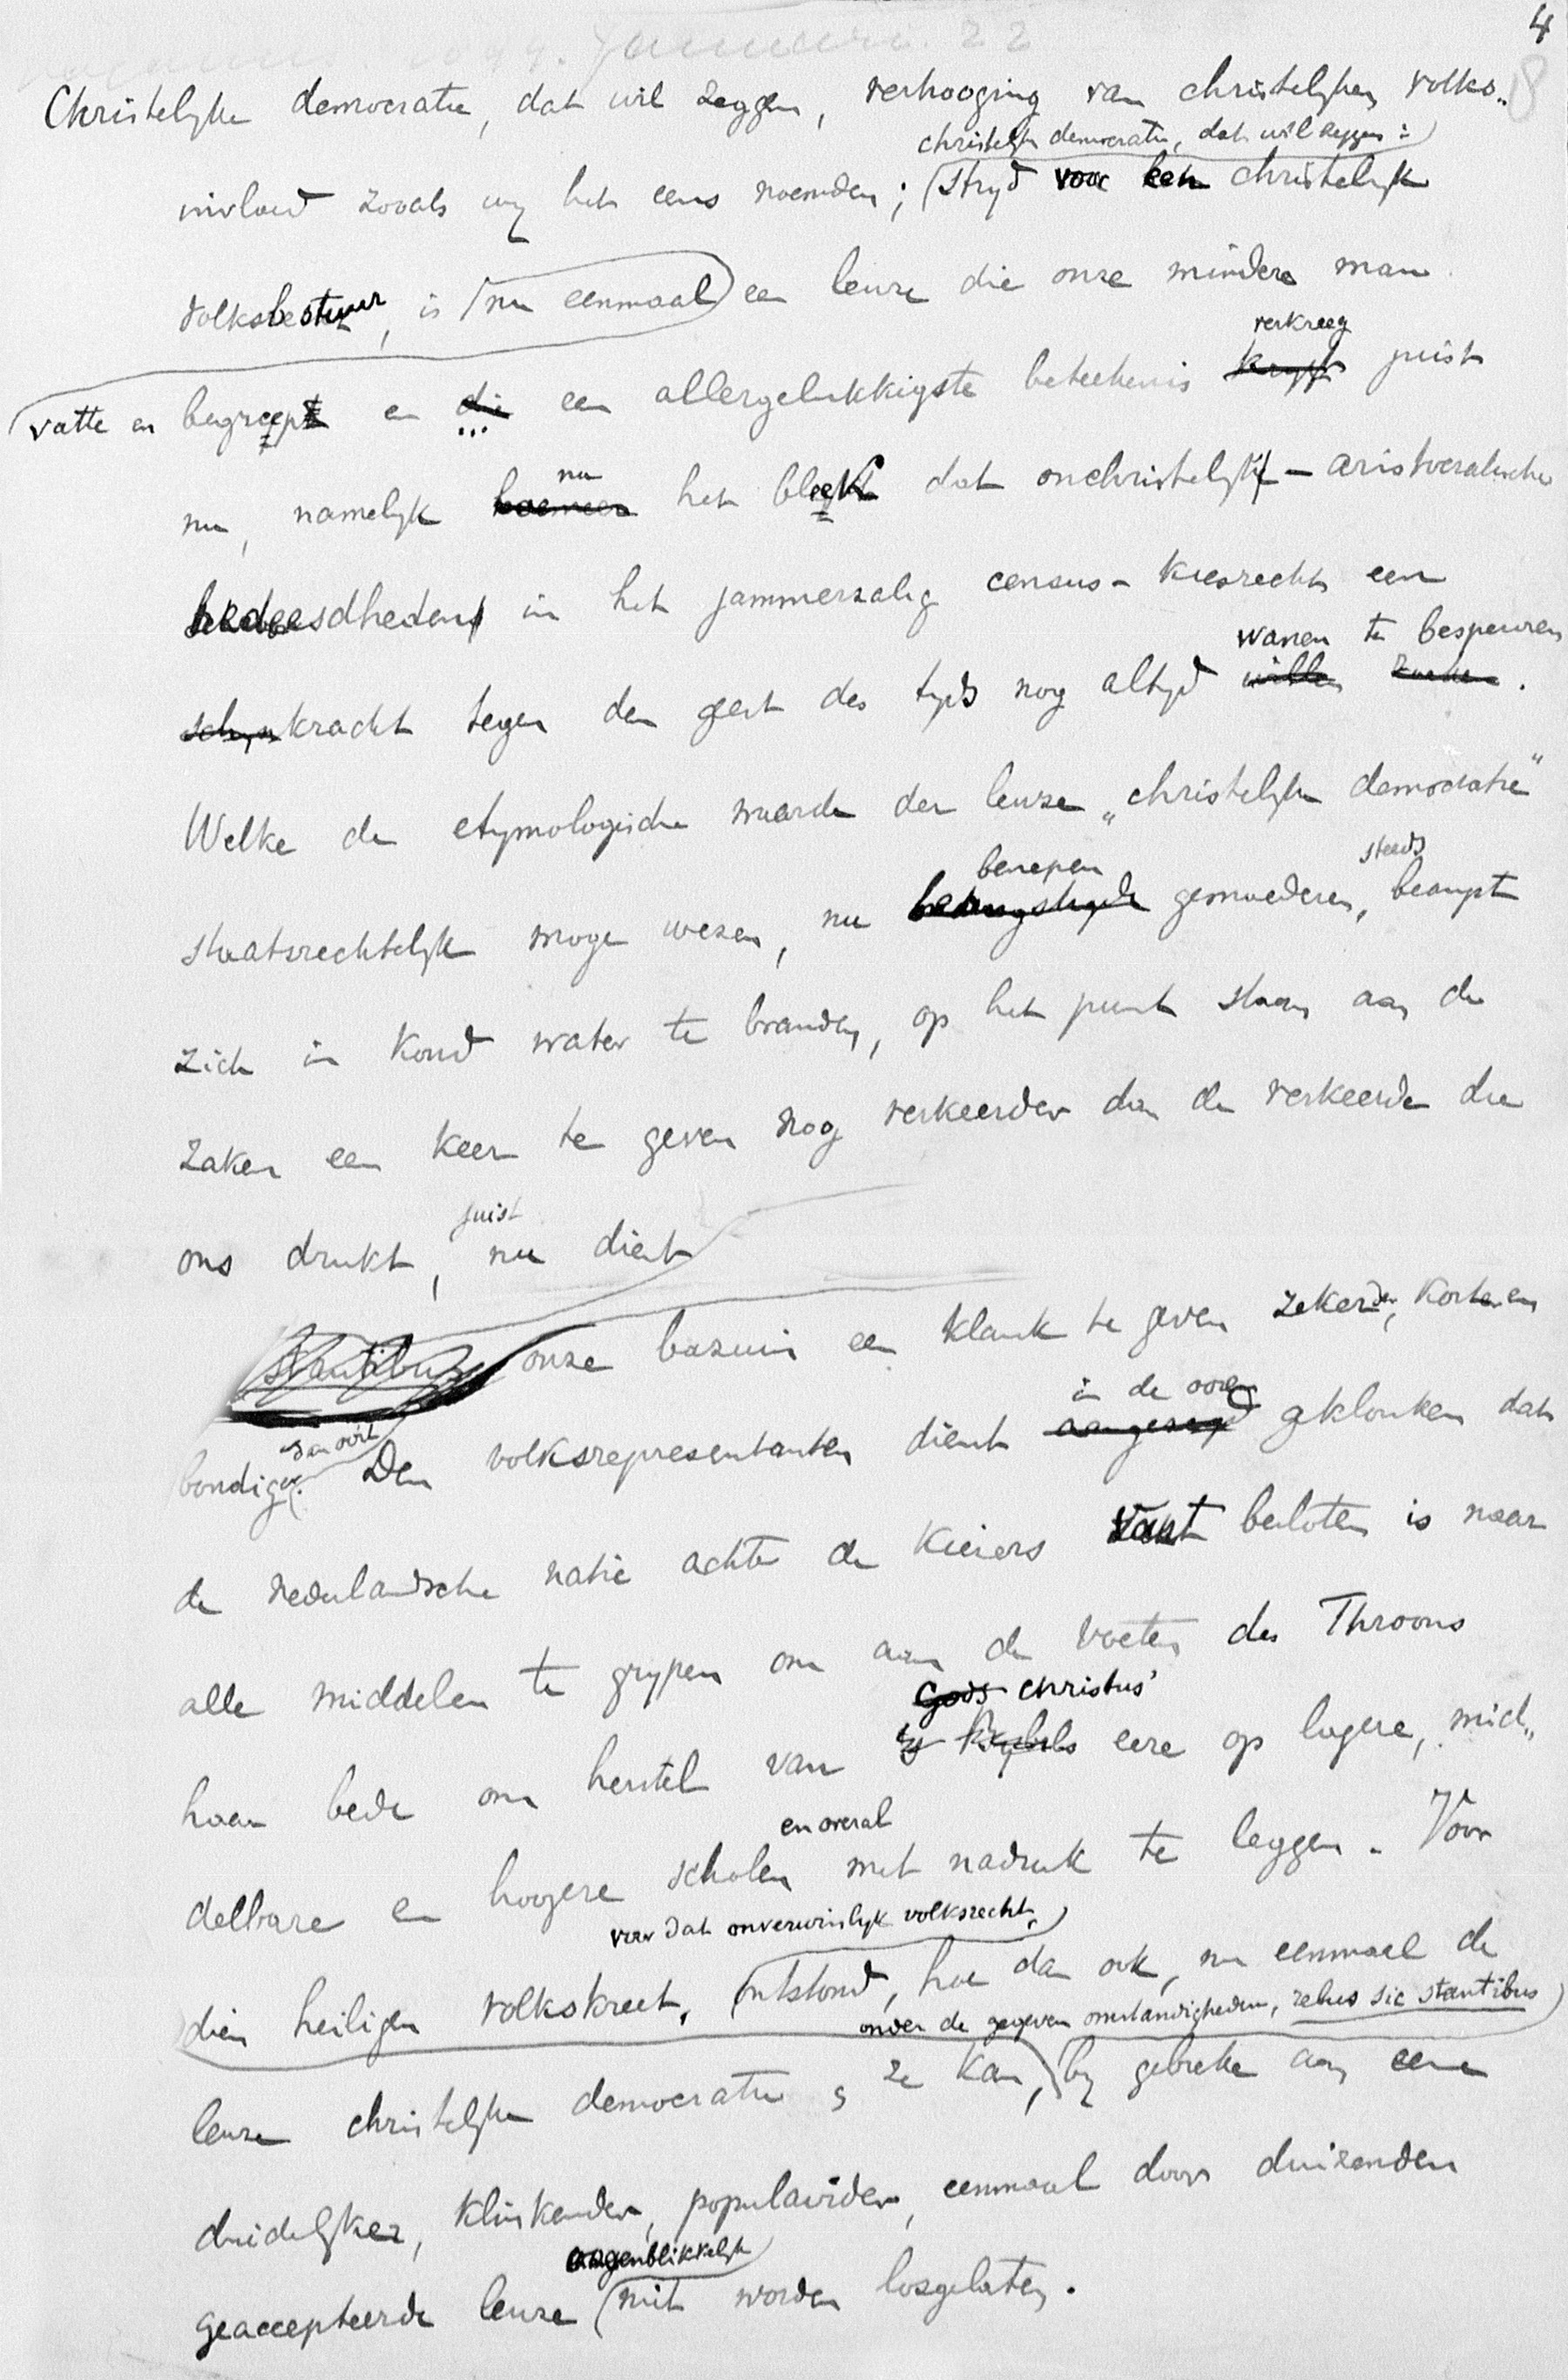 4
8
Christelyke democratie, dat wil zeggen, verhooging van christelyken volks„
christelyke democratie, dat wil zeggen:
invloed zooals wy het eens noemden; stryd voor een christelyk
volksbestuur, is nu eenmaal een leuze die onze mindere man
verkreeg
vatte en begreep en die een allergelukkigste beteekenis krygt juist
nu
nu, namelyk hoemeer het bleek dat onchristelyk-aristocratische
bedeesdheden in het jammerzalig census-kiesrecht een
wanen te bespeuren
schynkracht tegen den geest des tyds nog altyd willen zoeken.
Welke de etymologische waarde der leuze „christelyke democratie”
benepen steeds
staatsrechtelyk moge wezen, nu beangstigde gemoederen, beangst
zich in koud water te branden, op het punt staan aan de
zaken een keer te geven nog verkeerder dan de verkeerde die
juist
ons drukt, nu dient
stantibus onze bazuin een klank te geven zekerder, korter en
dan ooit in de ooren
bondiger. Den volksrepresentanten dient aangezegd geklonken dat
de nederlandsche natie achter de kiezers vast besloten is naar
alle middelen te grypen om aan de voeten des Throons
Gods Christus'
haar bede om herstel van eere op lagere, mid„
en overal
delbare en hoogere scholen met nadruk te leggen. Voor
voor dat onverwinlyk volksrecht,
dien heiligen volkskreet, ontstond, hoe dan ook, nu eenmaal de
onder de gegeven omstandigheden, rebus sic stantibus
leuze christelyke democratie; ze kan, by gebreke aan eene
duidelyker, klinkender, populairder, eenmaal door duizenden
oogenblikkelyk
geaccepteerde leuze niet worden losgelaten.